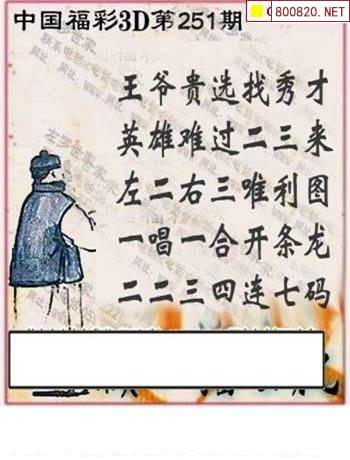 中国福彩3D第251期
800820.NET
王爷贵选找秀才
英雄难过二三来
左二右三唯利图
一唱一合开条龙
二二三四连七码